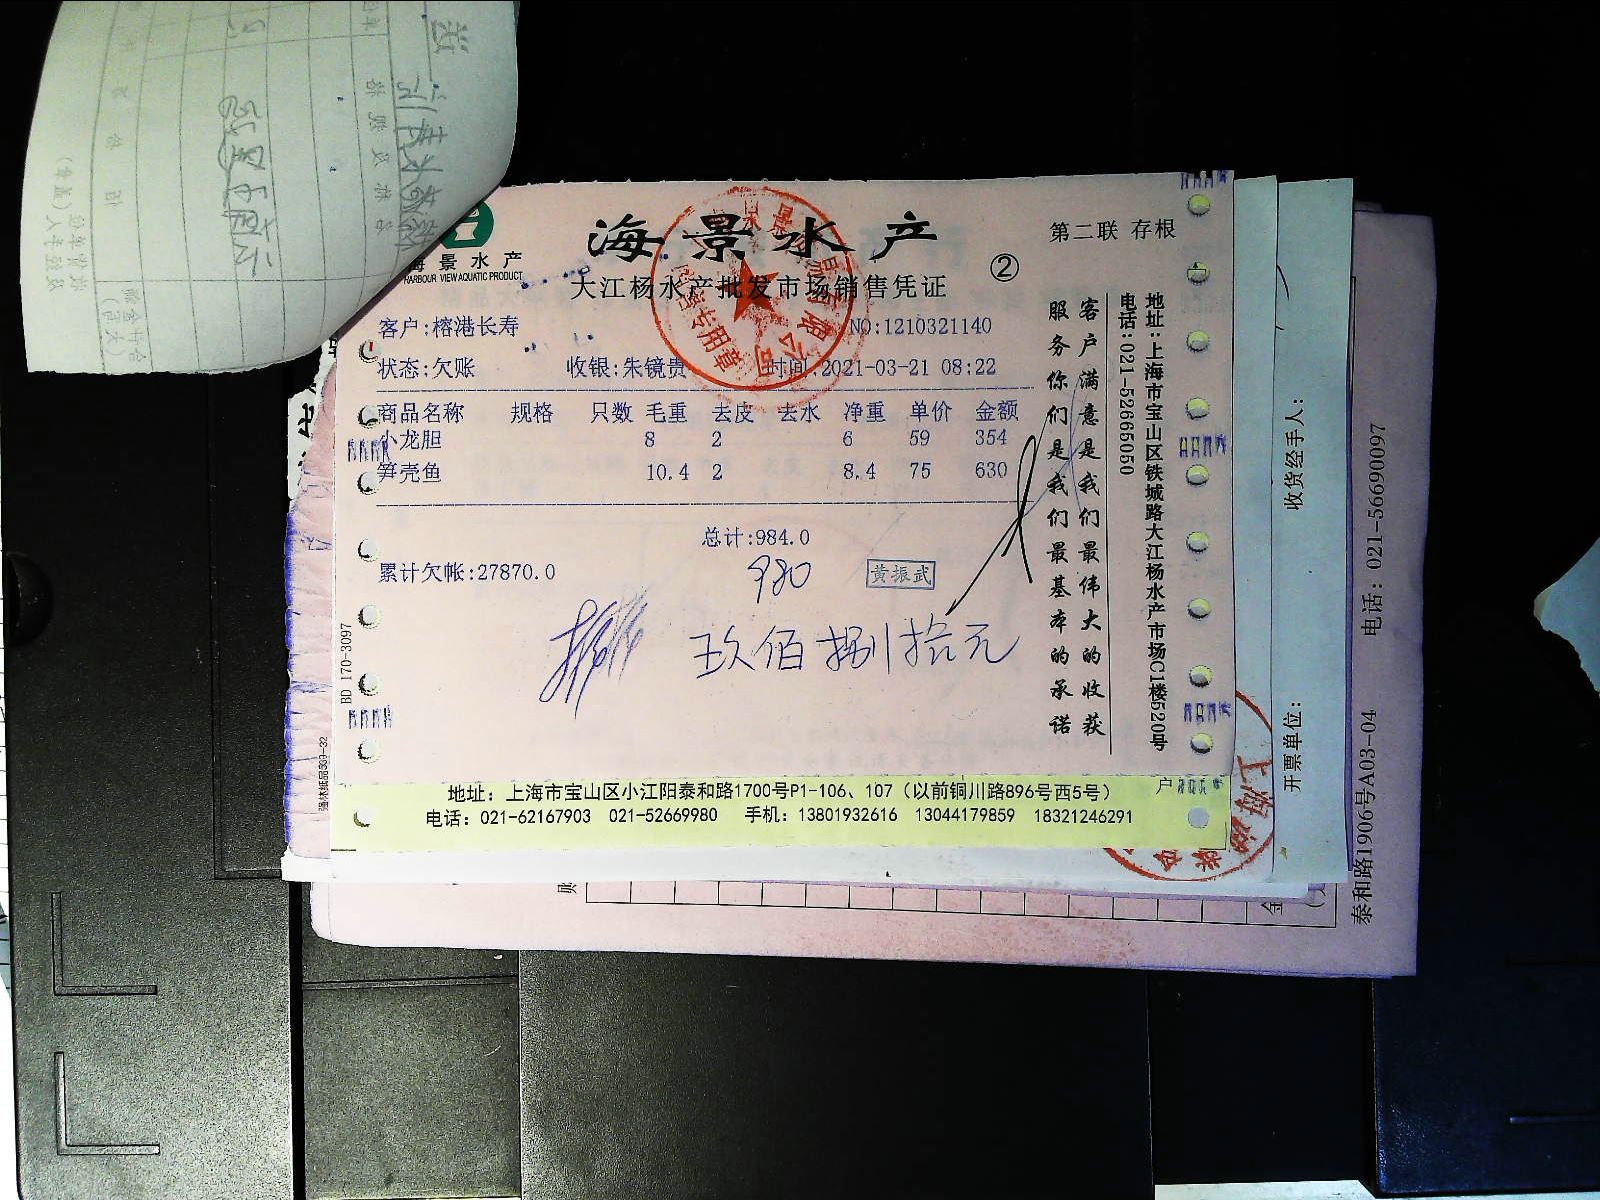 海景水产
HARBOUR VIEW AQUATIC PRODUCT
海景水产
第二联 存根
②
大江杨水产批发市场销售凭证
客户:榕港长寿
NO:1210321140
状态:欠账 收银:朱镜贵 时间:2021-03-21 08:22
商品名称 规格 只数 毛重 去皮 去水 净重 单价 金额
小龙胆 8 2 6 59 354
笋壳鱼 10.4 2 8.4 75 630
总计:984.0
980
黄振武
累计欠帐:27870.0
玖佰捌拾元
客户满意是我们最伟大的收获
服务你们是我们最基本的承诺
地址:上海市宝山区铁城路大江杨水产市场C1楼520号
电话:021-52665050
BD 170-3097
地址：上海市宝山区小江阳泰和路1700号P1-106、107（以前铜川路896号西5号）
电话：021-62167903 021-52669980 手机：13801932616 13044179859 18321246291
户
收货经手人：
开票单位：
泰和路1906号A03-04 电话：021-56690097
金